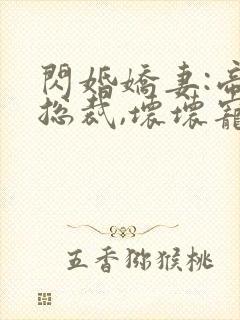 閃婚嬌妻:帝
總裁,壞壞寵
五香獼猴桃